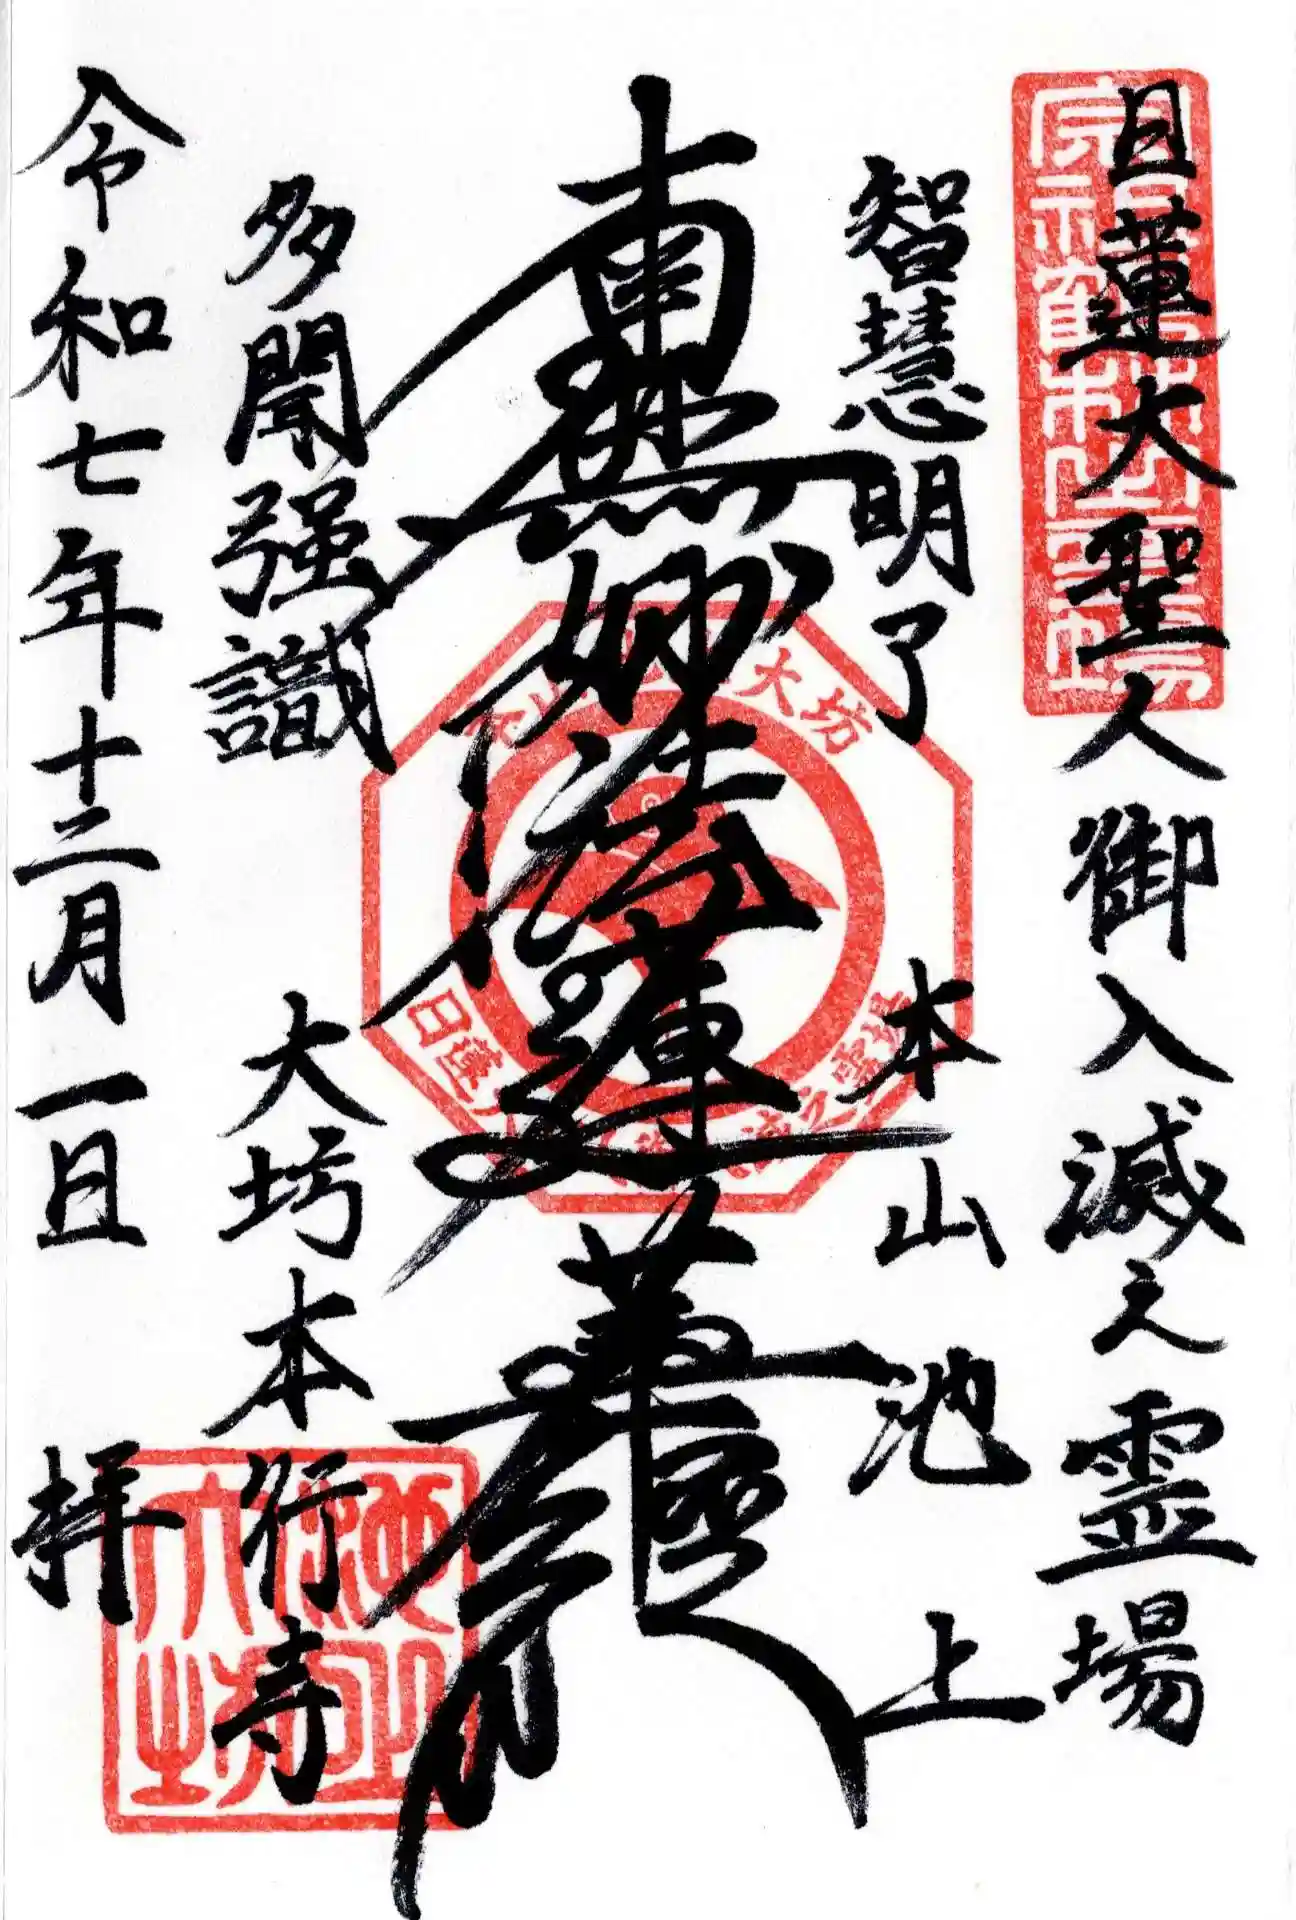 日蓮大聖人御入滅之霊場
智慧明了
本山池上
南無妙法蓮華経
多聞强識
大坊本行寺
令和七年十二月一日
拝
大坊
日蓮